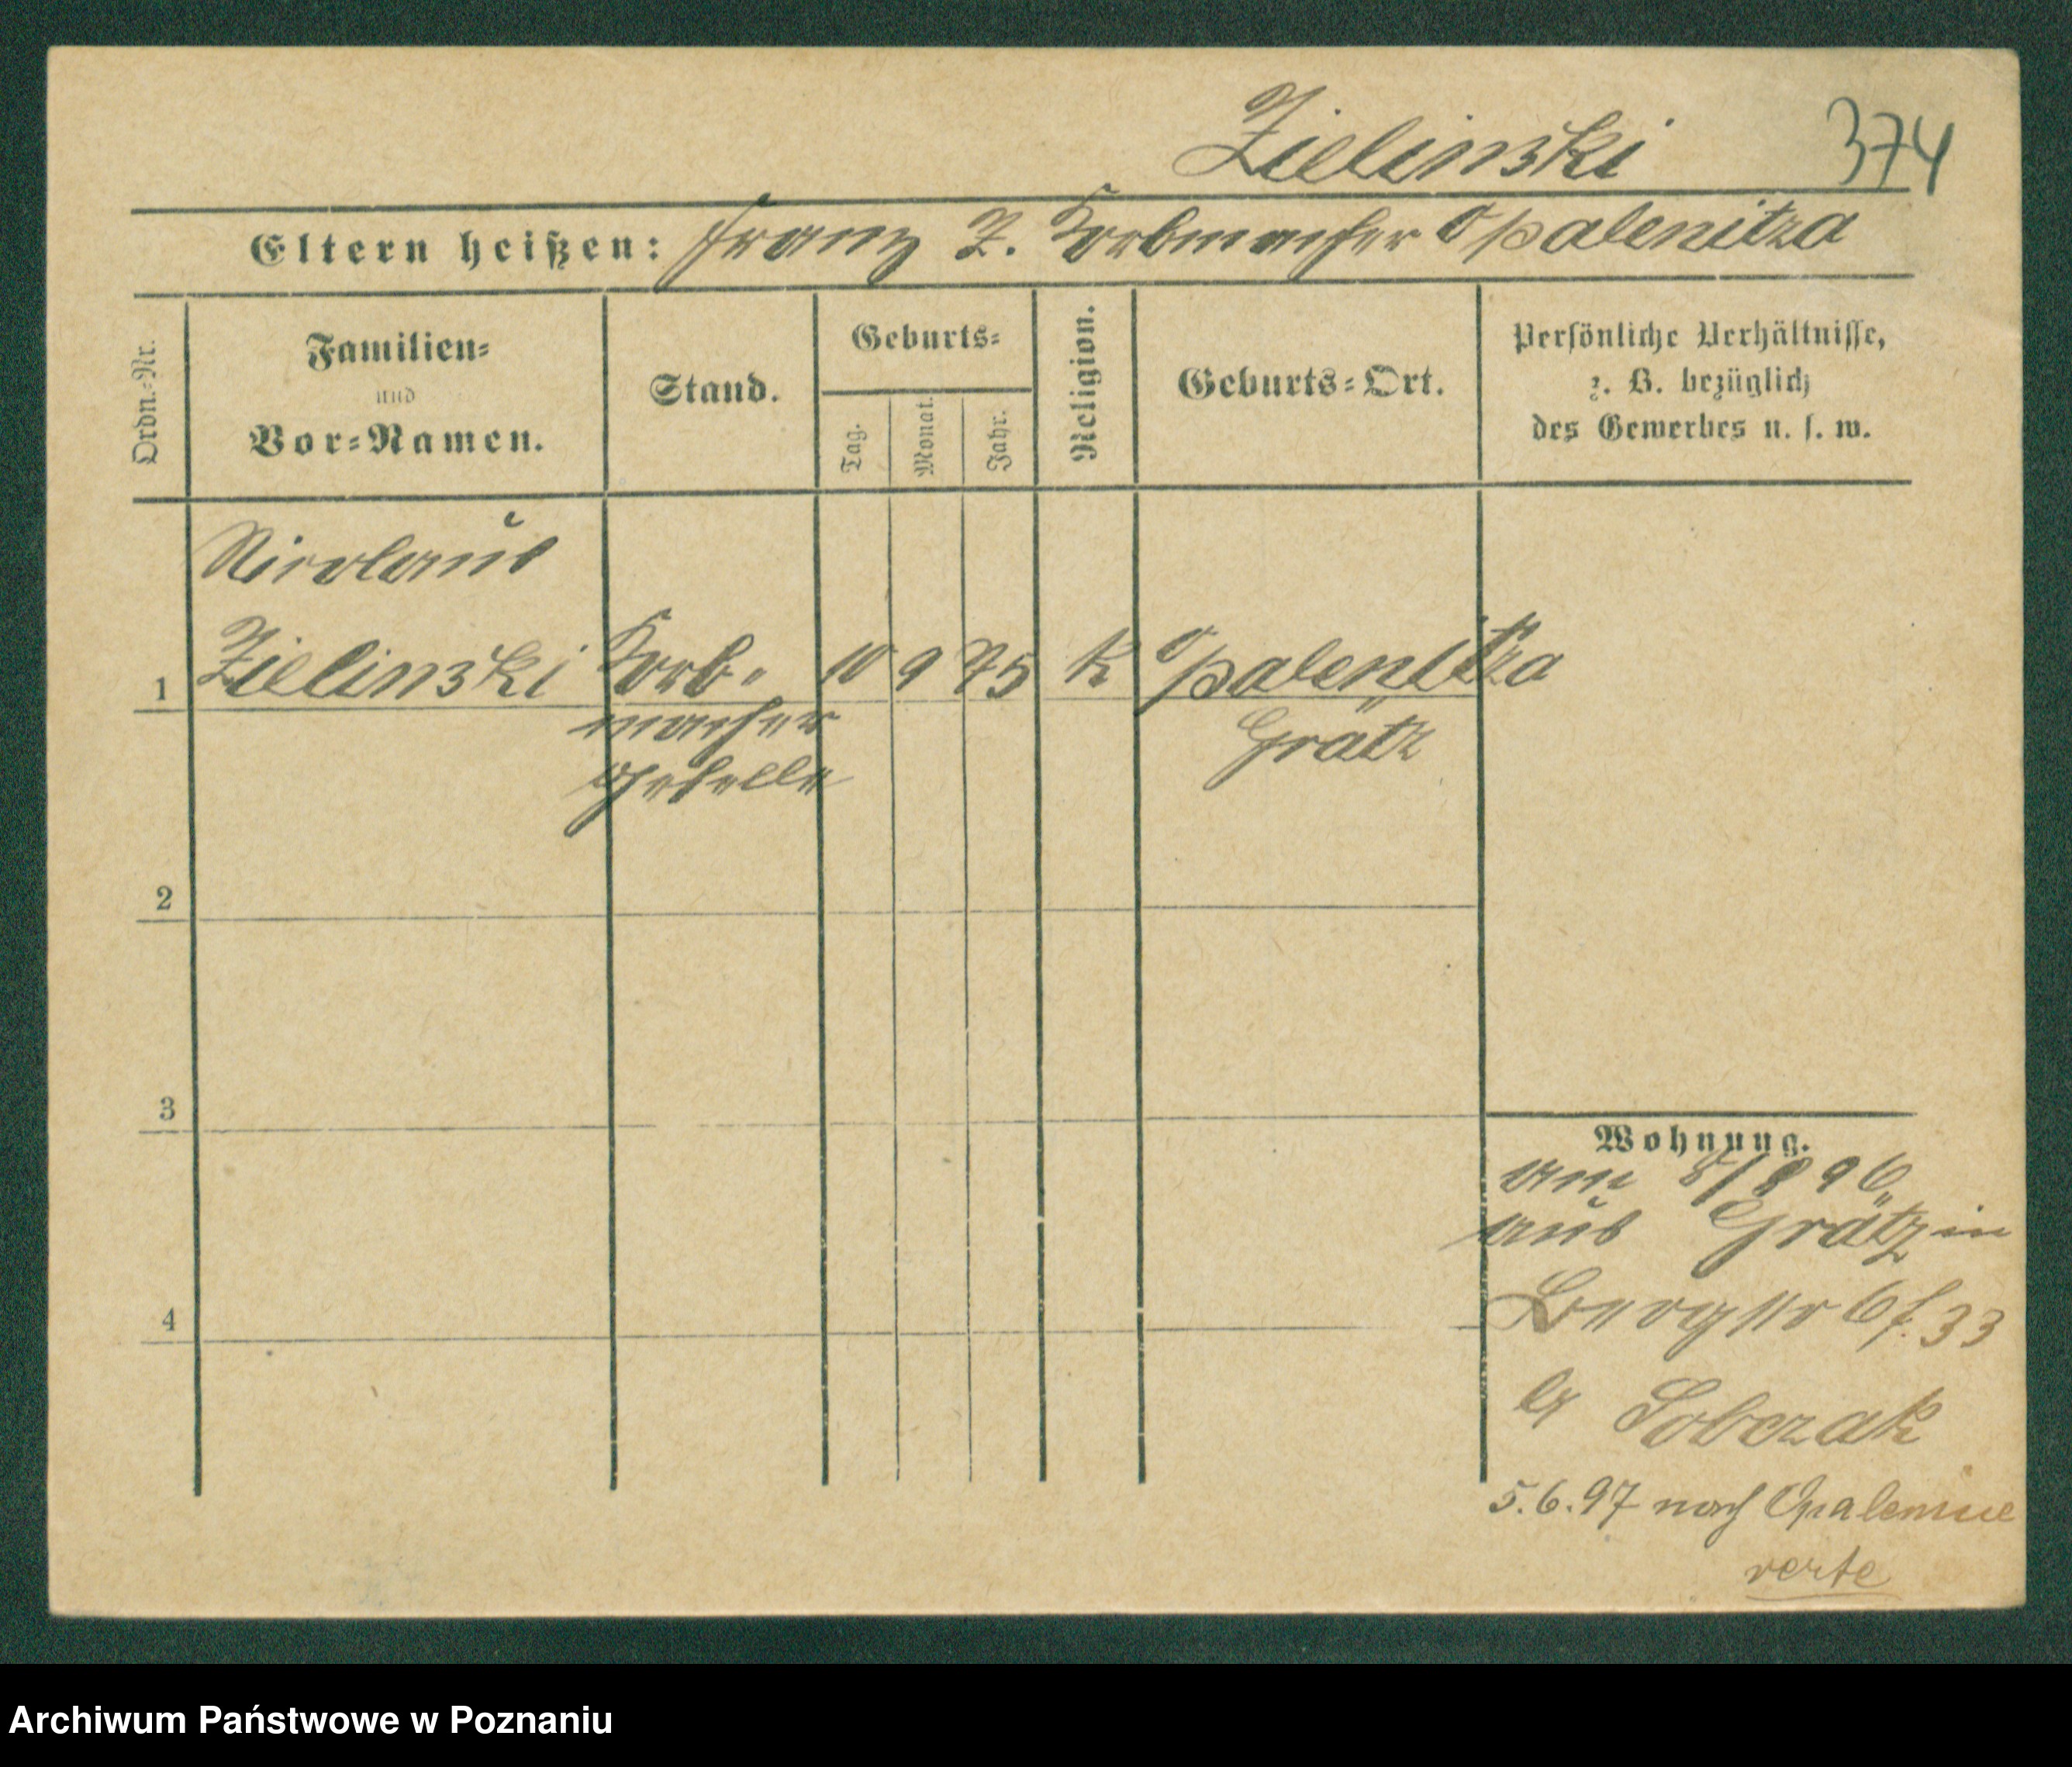 Zielinski 374
Eltern heißen: Franz Z. Korbmacher Opalenitza
Ordn.-Nr.
Familien-
und
Vor-Namen.
Stand.
Geburts-
Tag.
Monat.
Jahr.
Religion.
Geburts-Ort.
Persönliche Verhältnisse,
z. B. bezüglich
des Gewerbes u. s. w.
Nicolaus
1 Zielinski Korb- 10 9 75 k Opalenitza
macher Grätz
Geselle
2
3
4
Wohnung.
am 8/8 96
aus Grätz in
6 f. 33
Sobczak
5.6.97 nach Opalenice
verte
Archiwum Państwowe w Poznaniu